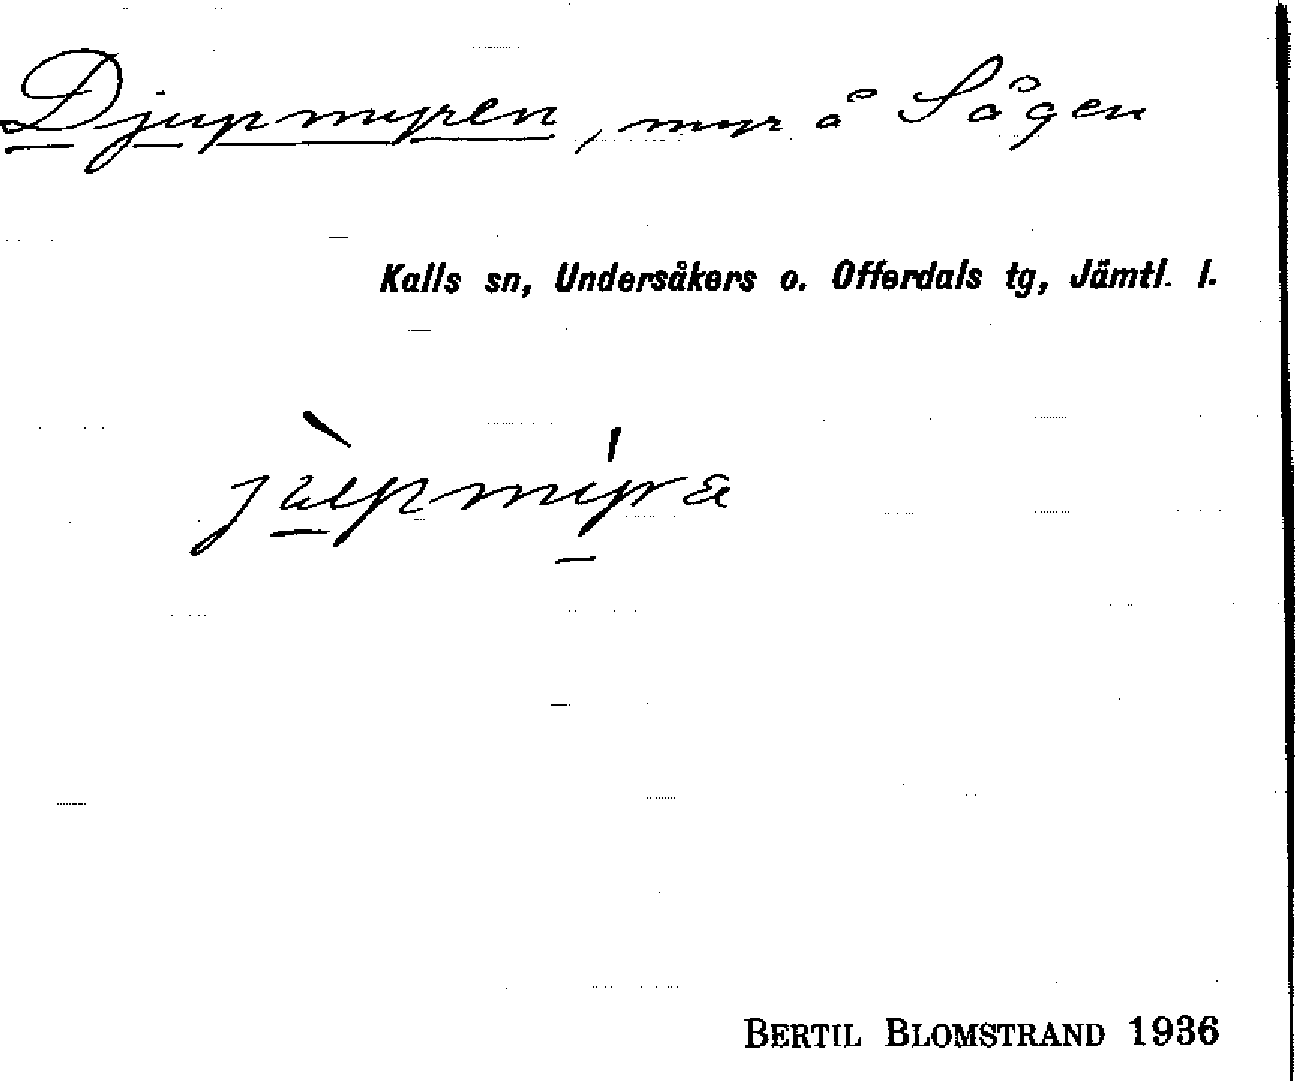 Djupmyren, myr å Sågen
Kalls sn, Undersåkers o. Offerdals tg, Jämtl. l.
BERTIL BLOMSTRAND 1936